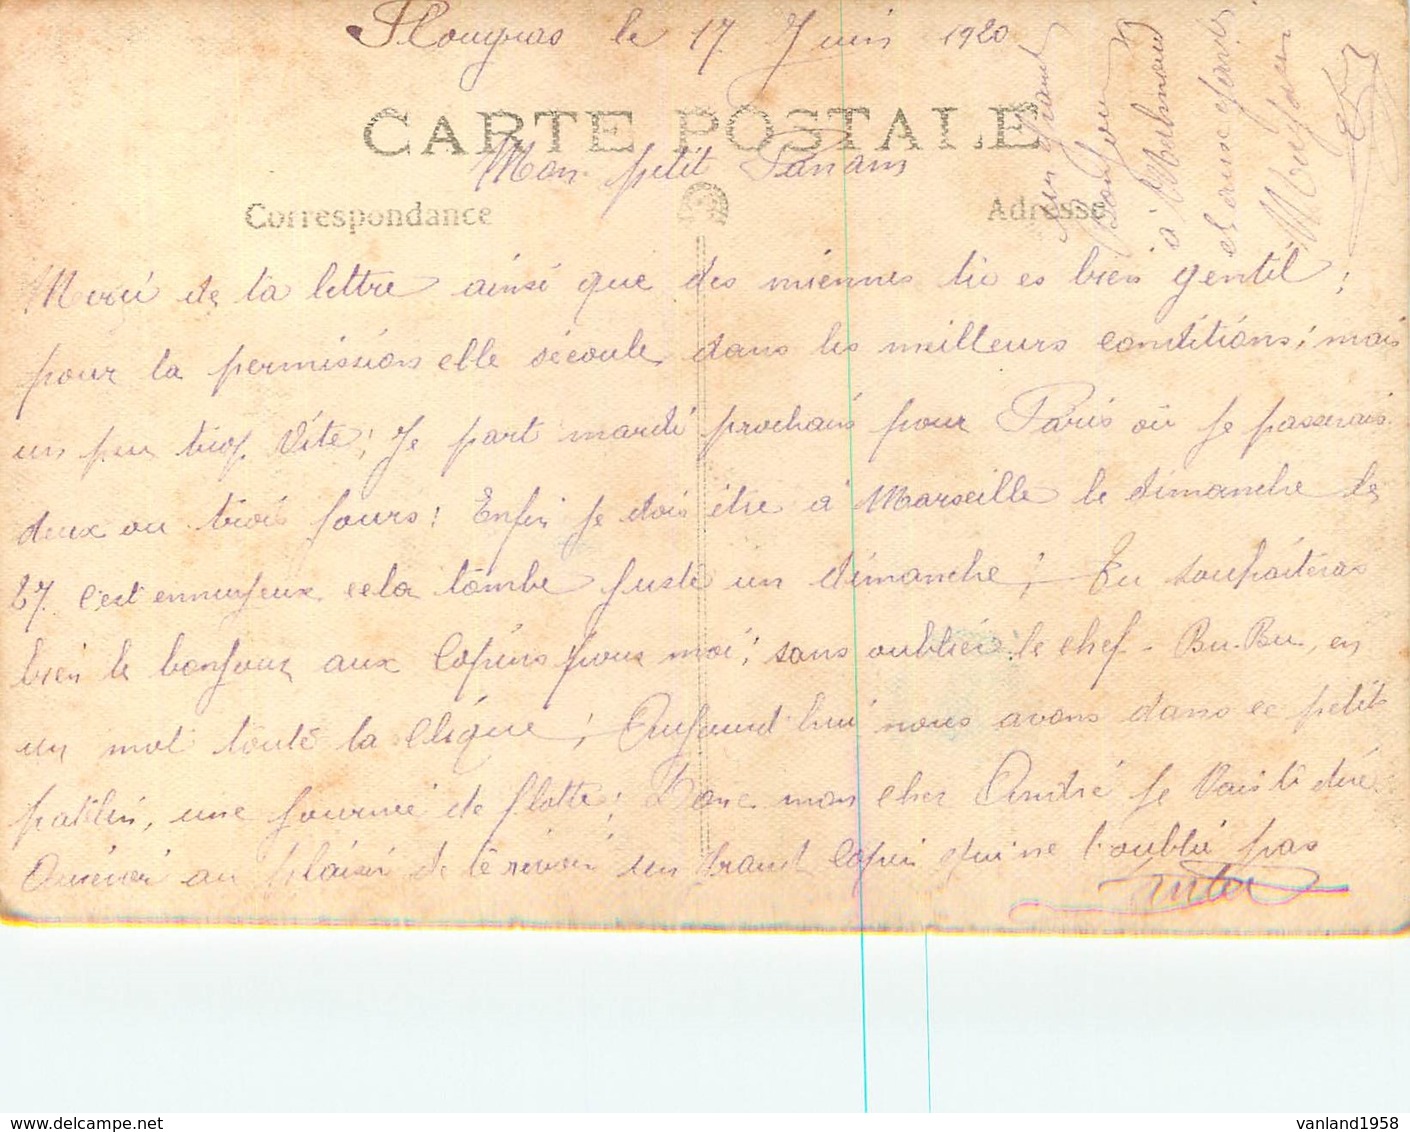 Plougras le 17 Juin 1920
CARTE POSTALE
Mon petit
Correspondance
Adresse
Merci de ta lettre ainsi que des miennes tu es bien gentil;
pour la permission elle découle dans les meilleurs conditions; mais
un peu trop vite; Je part mardi prochais pour Paris où je passerais
deux ou trois jours; Enfin je dois être à Marseille le dimanche le
27. c'est ennuyeux cela tombe juste un dimanche; Tu souhaiteras
bien le bonjour aux Copins pour moi; sans oublier le chef - Bu-Bu, en
un mot toute la Clique; Aujourd'hui nous avons dans ce petit
patelin, une journée de flotte; Donc mon cher André je vais te dire
Aurevoir au plaisir de te revoir un Grand Copin qui ne t'oublie pas
un grand
Bonjour
à
et aux
vanland1958